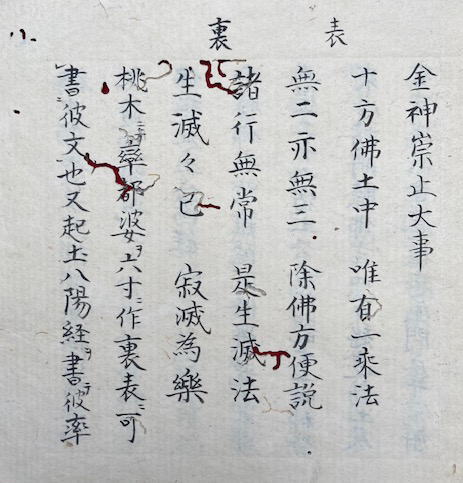 金神崇止大事
表
十方佛土中　唯有一乗法
無二亦無三　除佛方便説
裏
諸行無常　是生滅法
生滅々已　寂滅為樂
桃木ニテ率都婆ヲ六寸ニ作裏表ニ可
書彼文也又起土八陽経ヲ書テ彼率